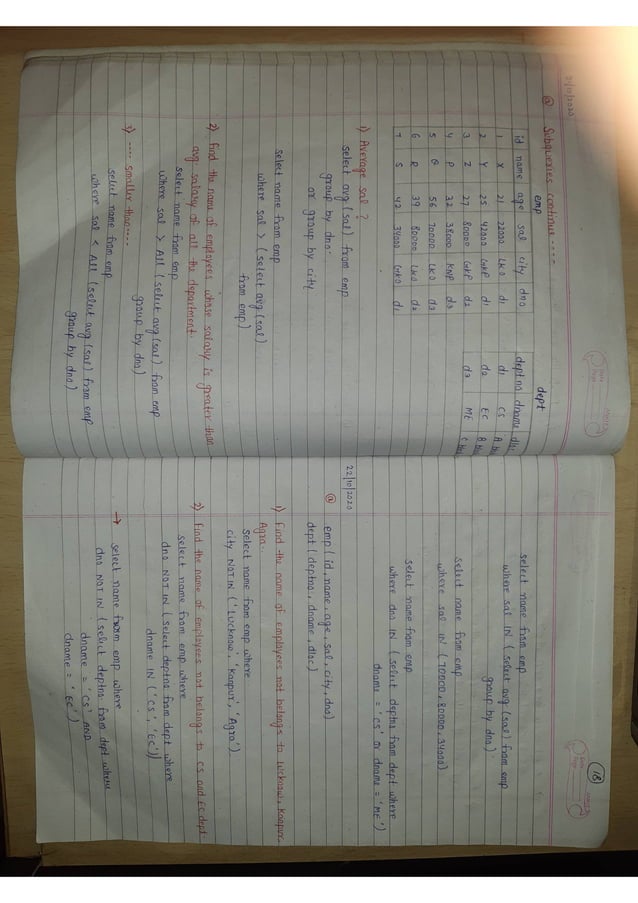 21/10/2020
@ Subqueries continue ----
emp
id name age sal city dno
1 X 21 22000 LKO d1
2 Y 25 42000 GKP d1
3 Z 27 80000 GKP d2
4 P 32 38000 KNP d3
5 Q 56 70000 LKO d3
6 R 39 80000 LKO d2
7 S 42 34000 GKO d1
dept
deptno dname
d1 CS
d2 EC
d3 ME
1) Average sal ?
select avg (sal) from emp
group by dno.
or group by city
select name from emp
where sal > (select avg (sal)
from emp)
2) Find the name of employees whose salary is greater than
avg salary of all the department.
select name from emp
where sal > All (select avg (sal) from emp
group by dno)
3) ---- smaller than----
select name from emp
where sal < All (select avg (sal) from emp
group by dno)
18
select name from emp
where sal IN (select avg (sal) from emp
group by dno)
select name from emp
where sal IN (70000, 80000, 34000)
select name from emp
where dno IN (select deptno from dept where
dname = 'CS' or dname = 'ME')
22/10/2020
@ emp (id, name, age, sal, city, dno)
dept (deptno, dname, dloc)
1) Find the name of employees not belongs to Lucknow, Kanpur,
Agra..
select name from emp where
city NOT IN ('Lucknow', 'Kanpur', 'Agra')
2) Find the name of employees not belongs to CS and EC dept.
select name from emp where
dno NOT IN (select deptno from dept where
dname IN ('CS', 'EC'))
→ select name from emp where
dno NOT IN (select deptno. from dept where
dname = 'CS' AND
dname = 'EC')